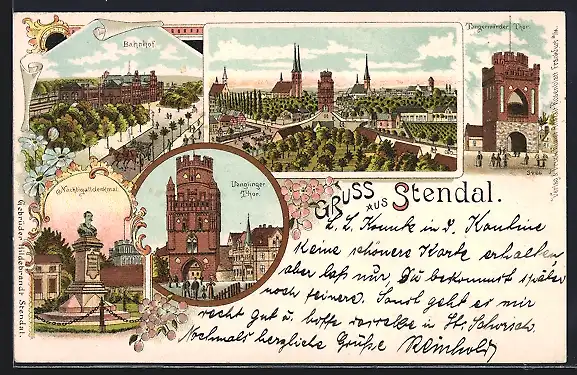 Bahnhof
Tangermünder Thor.
Nachtigalldenkmal
Uenglinger
Thor.
GRUSS AUS Stendal.
L. L. Konnte in d. Kantine
keine schönere Karte erhalten,
aber laß nur, Du bekommst später
noch feinere. Sonst geht es mir
recht gut u. hoffe dasselbe in
Nochmals herzliche Grüße Reinhold
Gebrüder Hildebrandt, Stendal.
Verlag v.